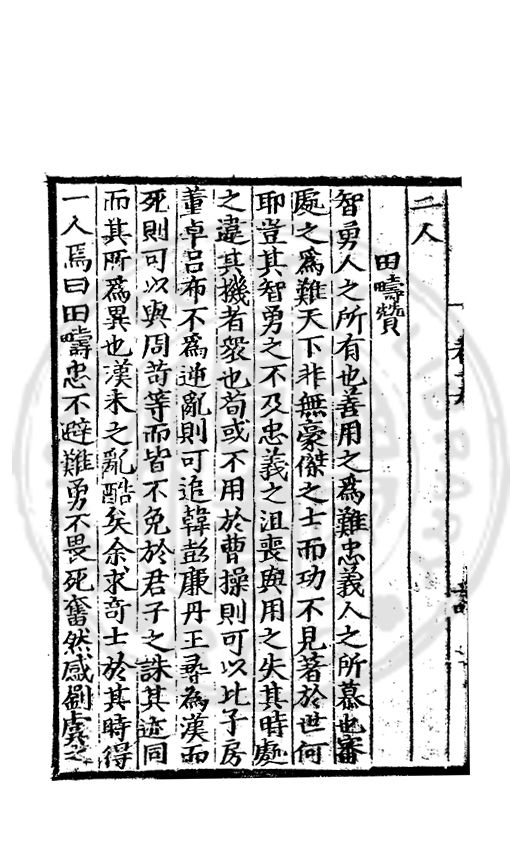 二人
田疇贊
智勇人之所有也善用之為難忠義人之所慕也審
處之為難天下非無豪傑之士而功不見著於世何
耶豈其智勇之不及忠義之沮喪與用之失其時處
之違其機者衆也荀或不用於曹操則可以比子房
董卓呂布不為逆亂則可追韓彭廉丹王尋為漢而
死則可以與周苛等而皆不免於君子之誅其迹同
而其所為異也漢末之亂酷矣余求奇士於其時得
一人焉曰田疇忠不避難勇不畏死奮然感劉虞之